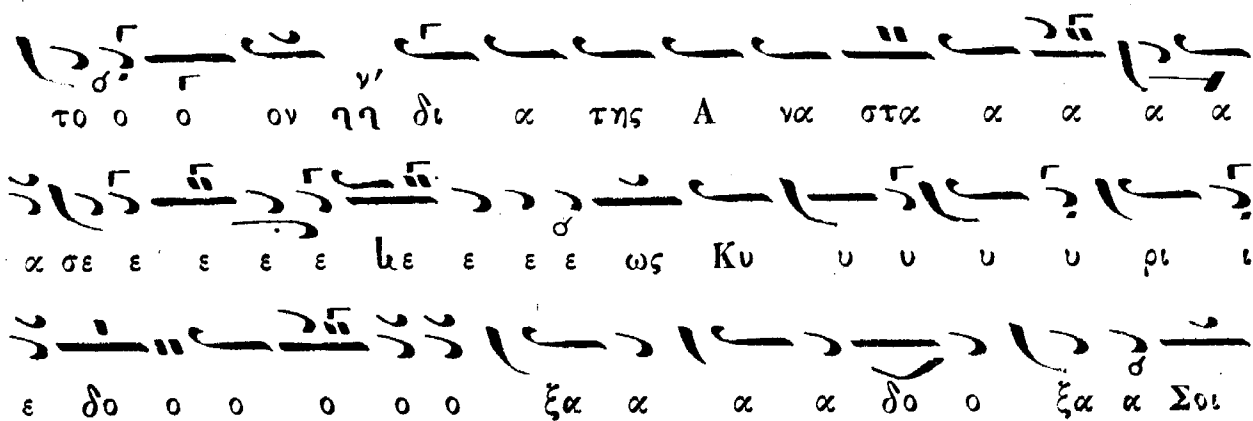 το ο ο ον ηη δι α της Α να στα α α α α
α σε ε ε ε ε κε ε ε ε ως Κυ υ υ υ υ ρι ι
ε δο ο ο ο ο ο ξα α α α δο ο ξα α Σοι